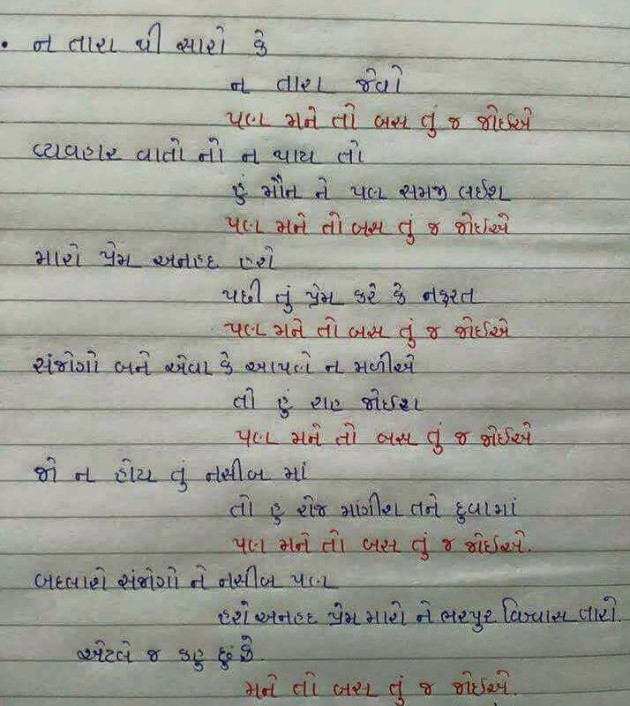 • ન તારા થી સારો કે
ન તારા જેવો
પણ મને તો બસ તું જ જોઈએ
વ્યવહાર વાતો નો ન થાય તો
હું મૌન ને પણ સમજી લઈશ
પણ મને તો બસ તું જ જોઈએ
મારો પ્રેમ અનહદ હશે
પછી તું પ્રેમ કરે કે નફરત
પણ મને તો બસ તું જ જોઈએ
સંજોગો બને એવા કે આપણે ન મળીએ
તો હું રાહ જોઈશ
પણ મને તો બસ તું જ જોઈએ
જો ન હોય તું નસીબ માં
તો હું રોજ માંગીશ તને દુવામાં
પણ મને તો બસ તું જ જોઈએ.
બદલાશે સંજોગો ને નસીબ પણ
હશે અનહદ પ્રેમ મારો ને ભરપુર વિશ્વાસ તારો.
એટલે જ કહુ છું કે
મને તો બસ તું જ જોઈએ.